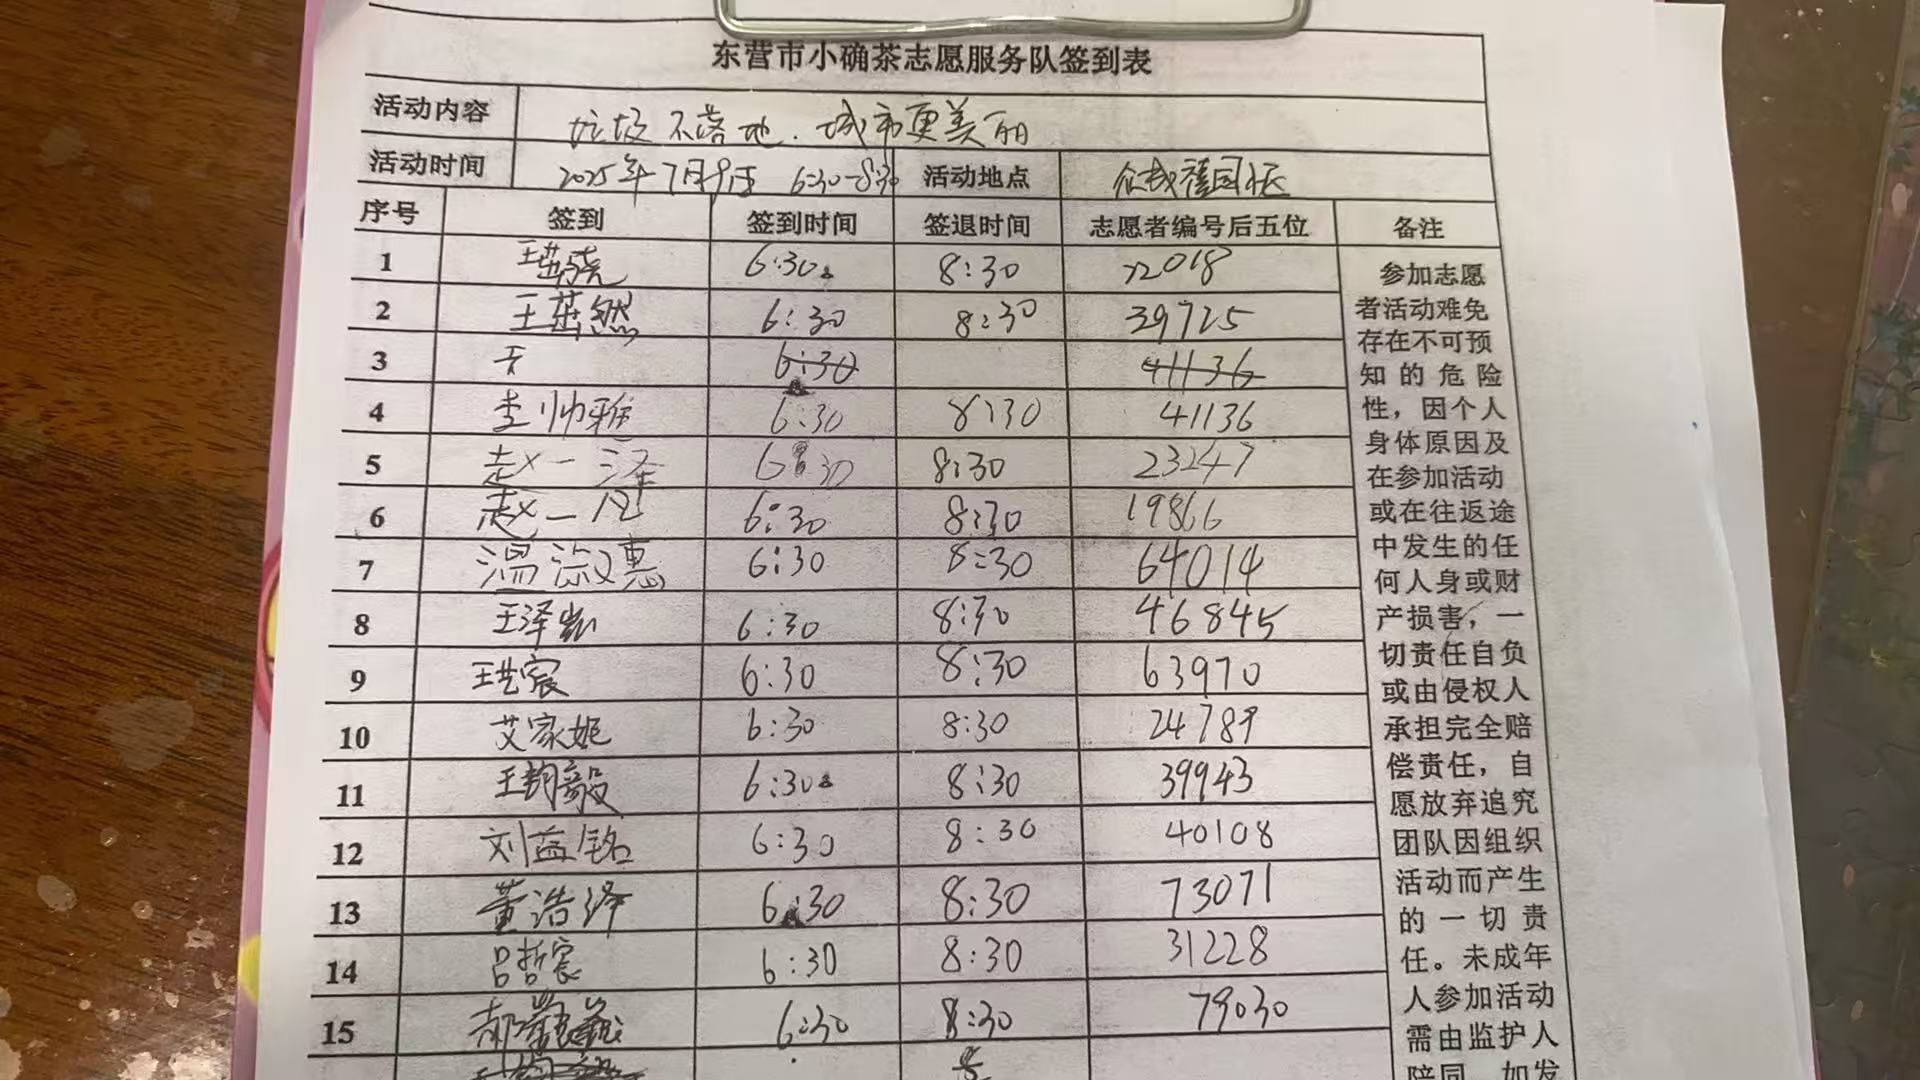 东营市小确茶志愿服务队签到表
活动内容 垃圾不落地.城市更美丽
活动时间 2025年7月9日 6:30-8:30 活动地点
序号 签到 签到时间 签退时间 志愿者编号后五位 备注
1 6:30 8:30 22018
2 王苒然 6:30 8:30 39725
3 王 6:30 41136
4 李帅雅 6:30 8:30 41136
5 赵一泽 6:30 8:30 23247
6 赵一凡 6:30 8:30 19866
7 温淑惠 6:30 8:30 64014
8 王泽凯 6:30 8:30 46845
9 王艺宸 6:30 8:30 63970
10 艾家妮 6:30 8:30 24789
11 6:30 8:30 39943
12 刘益铭 6:30 8:30 40108
13 董浩泽 6:30 8:30 73071
14 吕哲宸 6:30 8:30 31228
15 郝 6:30 8:30 79030
参加志愿
者活动难免
存在不可预
知的危险
性，因个人
身体原因及
在参加活动
或在往返途
中发生的任
何人身或财
产损害，一
切责任自负
或由侵权人
承担完全赔
偿责任，自
愿放弃追究
团队因组织
活动而产生
的一切责
任。未成年
人参加活动
需由监护人
陪同，如发